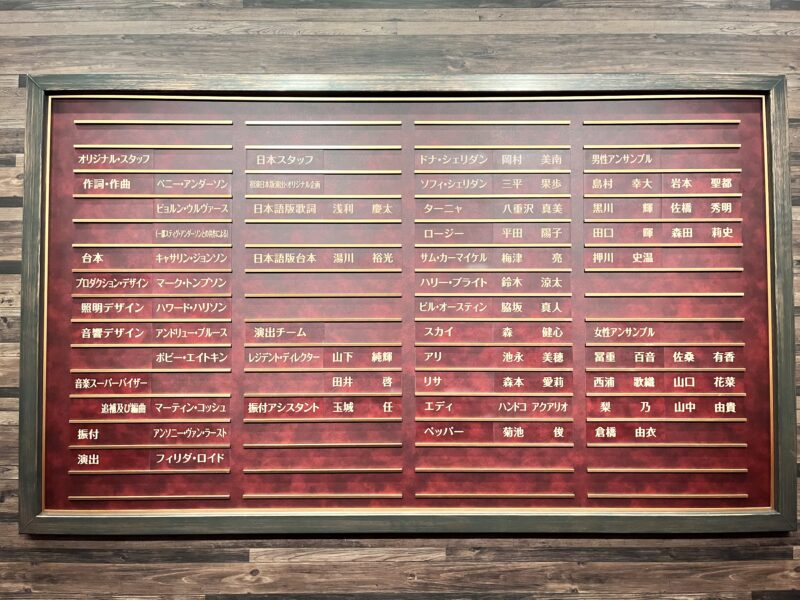 オリジナル・スタッフ
作詞・作曲 ベニー・アンダーソン
ビョルン・ウルヴァース
(一部スティグ・アンダーソンとの共作による)
台本 キャサリン・ジョンソン
プロダクション・デザイン マーク・トンプソン
照明デザイン ハワード・ハリソン
音響デザイン アンドリュー・ブルース
ボビー・エイトキン
音楽スーパーバイザー
追補及び編曲 マーティン・コッシュ
振付 アンソニー・ヴァン・ラースト
演出 フィリダ・ロイド
日本スタッフ
日本語版歌詞 浅利 慶太
日本語版台本 湯川 裕光
演出チーム
レジデント・ディレクター 山下 純輝
田井 啓
振付アシスタント 玉城 任
ドナ・シェリダン 岡村 美南
ソフィ・シェリダン 三平 果歩
ターニャ 八重沢 真美
ロージー 平田 陽子
サム・カーマイケル 梅津 亮
ハリー・ブライト 鈴木 涼太
ビル・オースティン 脇坂 真人
スカイ 森 健心
アリ 池永 美穂
リサ 森本 愛莉
エディ ハンドコ アクアリオ
ペッパー 菊池 俊
男性アンサンブル
島村 幸大 岩本 聖都
黒川 輝 佐橋 秀明
田口 暉 森田 莉史
押川 史温
女性アンサンブル
冨重 百音 佐桑 有香
西浦 歌織 山口 花菜
梨 乃 山中 由貴
倉橋 由衣